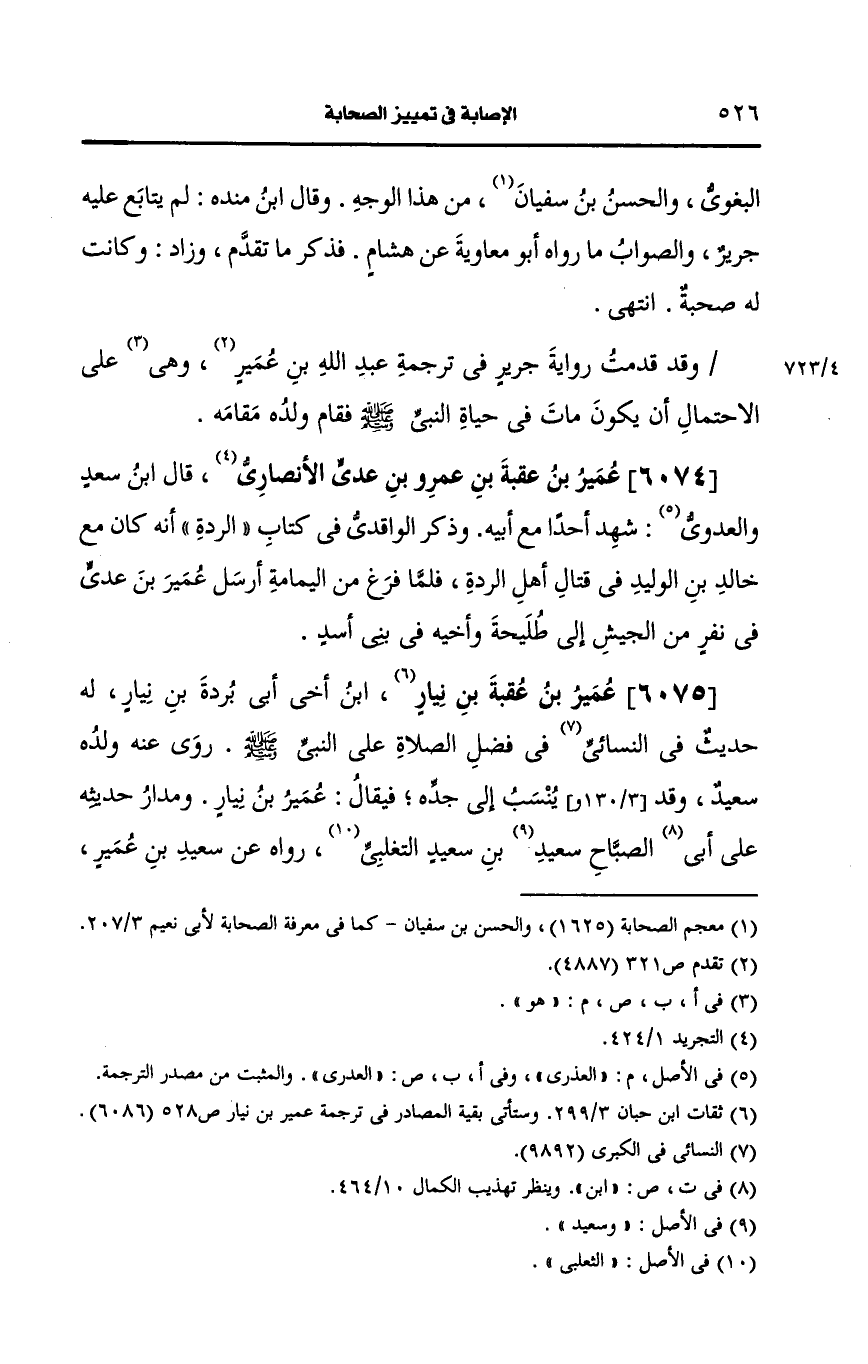 ٥٢٦ الإصابة فى تمييز الصحابة
البغوىُّ ، والحسنُ بنُ سفيانَ(١) ، من هذا الوجهِ . وقال ابنُ منده : لم يتابَع عليه
جريرٌ ، والصوابُ ما رواه أبو معاويةَ عن هشامٍ . فذكر ما تقدَّم ، وزاد : وكانت
له صحبةٌ . انتهى .
٧٢٣/٤ / وقد قدمتُ روايةَ جريرٍ فى ترجمةِ عبدِ اللهِ بنِ عُمَيرٍ(٢) ، وهى(٣) على
الاحتمالِ أن يكونَ ماتَ فى حياةِ النبىِّ ﷺ فقام ولدُه مَقامَه .
[٦٠٧٤] عُمَيرُ بنُ عقبةَ بنِ عمرِو بنِ عدىٍّ الأنصارىُّ(٤) ، قال ابنُ سعدٍ
والعدوىُّ(٥) : شهِد أحدًا مع أبيه. وذكر الواقدىُّ فى كتابِ « الردةِ » أنه كان مع
خالدِ بنِ الوليدِ فى قتالِ أهلِ الردةِ ، فلمَّا فرَغ من اليمامةِ أرسَل عُمَيرَ بنَ عدىٍّ
فى نفرٍ من الجيشِ إلى طُلَيحةَ وأخيه فى بنِى أسدٍ .
[٦٠٧٥] عُمَيرُ بنُ عُقبةَ بنِ نِيارٍ(٦) ، ابنُ أخى أبى بُردةَ بنِ نِيارٍ ، له
حديثٌ فى النسائىِّ(٧) فى فضلِ الصلاةِ على النبىِّ ﷺ . روَى عنه ولدُه
سعيدٌ ، وقد [١٣٠/٣و] يُنْسَبُ إلى جدِّه ؛ فيقالُ : عُمَيرُ بنُ نِيارٍ . ومدارُ حديثِه
على أبى(٨) الصبَّاحِ سعيدِ(٩) بنِ سعيدٍ التغلبِىِّ(١٠) ، رواه عن سعيدِ بنِ عُمَيرٍ ،
(١) معجم الصحابة (١٦٢٥) ، والحسن بن سفيان - كما فى معرفة الصحابة لأبى نعيم ٢٠٧/٣.
(٢) تقدم ص٣٢١ (٤٨٨٧).
(٣) فى أ ، ب ، ص ، م : « هو » .
(٤) التجريد ٤٢٤/١.
(٥) فى الأصل ، م : « العذرى » ، وفى أ ، ب ، ص : « العدرى » . والمثبت من مصدر الترجمة.
(٦) ثقات ابن حبان ٢٩٩/٣. وستأتى بقية المصادر فى ترجمة عمير بن نيار ص٥٢٨ (٦٠٨٦) .
(٧) النسائى فى الكبرى (٩٨٩٢).
(٨) فى ت ، ص : « ابن ». وينظر تهذيب الكمال ٤٦٤/١٠.
(٩) فى الأصل : « وسعيد » .
(١٠) فى الأصل : « الثعلبى » .